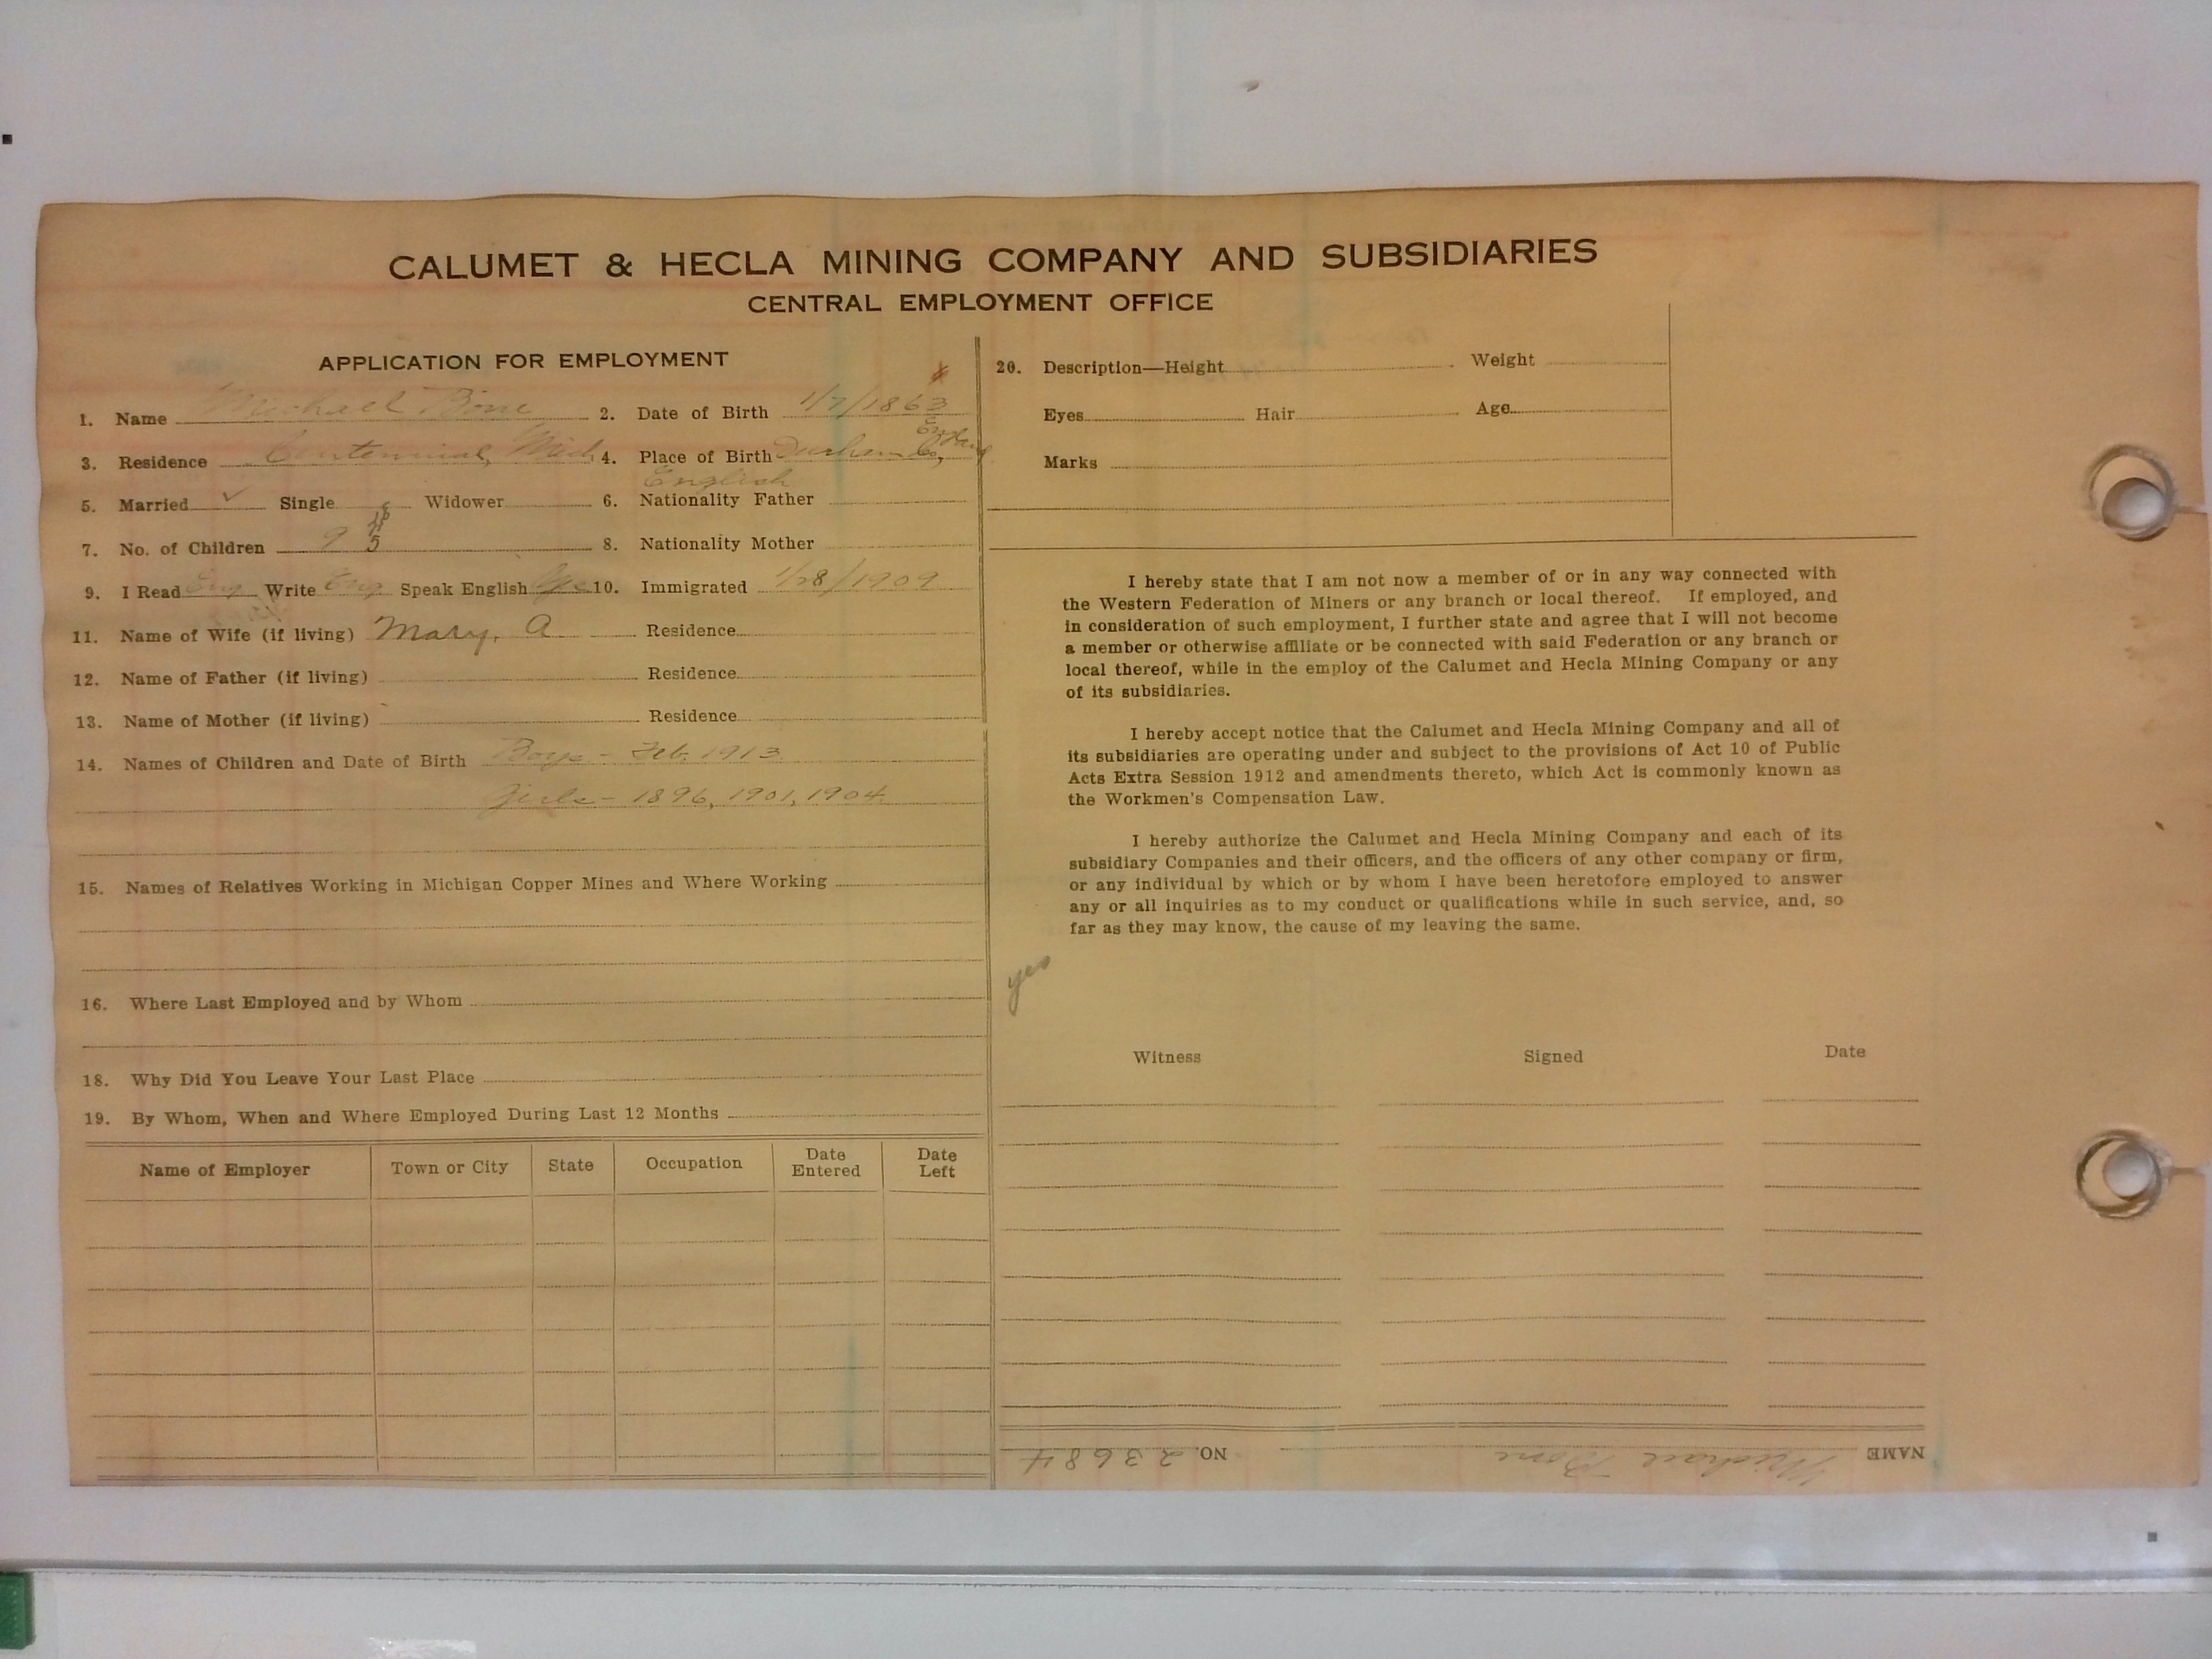 CALUMET & HECLA MINING COMPANY AND SUBSIDIARIES
CENTRAL EMPLOYMENT OFFICE
APPLICATION FOR EMPLOYMENT
1. Name Michael Bone 2. Date of Birth 1/7/1863
3. Residence Centennial, Mich. 4. Place of Birth Durham Co, England
5. Married ✓ Single Widower 6. Nationality Father English
7. No. of Children 9 5 8. Nationality Mother
9. I Read Eng Write Eng Speak English Yes 10. Immigrated 1/28/1909
11. Name of Wife (if living) Mary, A Residence
12. Name of Father (if living) Residence
13. Name of Mother (if living) Residence
14. Names of Children and Date of Birth Boys - Feb. 1913
Girls - 1896, 1901, 1904.
15. Names of Relatives Working in Michigan Copper Mines and Where Working
16. Where Last Employed and by Whom
18. Why Did You Leave Your Last Place
19. By Whom, When and Where Employed During Last 12 Months
Name of Employer Town or City State Occupation Date Entered Date Left
20. Description—Height Weight
Eyes Hair Age
Marks
I hereby state that I am not now a member of or in any way connected with
the Western Federation of Miners or any branch or local thereof. If employed, and
in consideration of such employment, I further state and agree that I will not become
a member or otherwise affiliate or be connected with said Federation or any branch or
local thereof, while in the employ of the Calumet and Hecla Mining Company or any
of its subsidiaries.
I hereby accept notice that the Calumet and Hecla Mining Company and all of
its subsidiaries are operating under and subject to the provisions of Act 10 of Public
Acts Extra Session 1912 and amendments thereto, which Act is commonly known as
the Workmen's Compensation Law.
I hereby authorize the Calumet and Hecla Mining Company and each of its
subsidiary Companies and their officers, and the officers of any other company or firm,
or any individual by which or by whom I have been heretofore employed to answer
any or all inquiries as to my conduct or qualifications while in such service, and, so
far as they may know, the cause of my leaving the same.
yes
Witness Signed Date
NAME Michael Bone NO. 23684